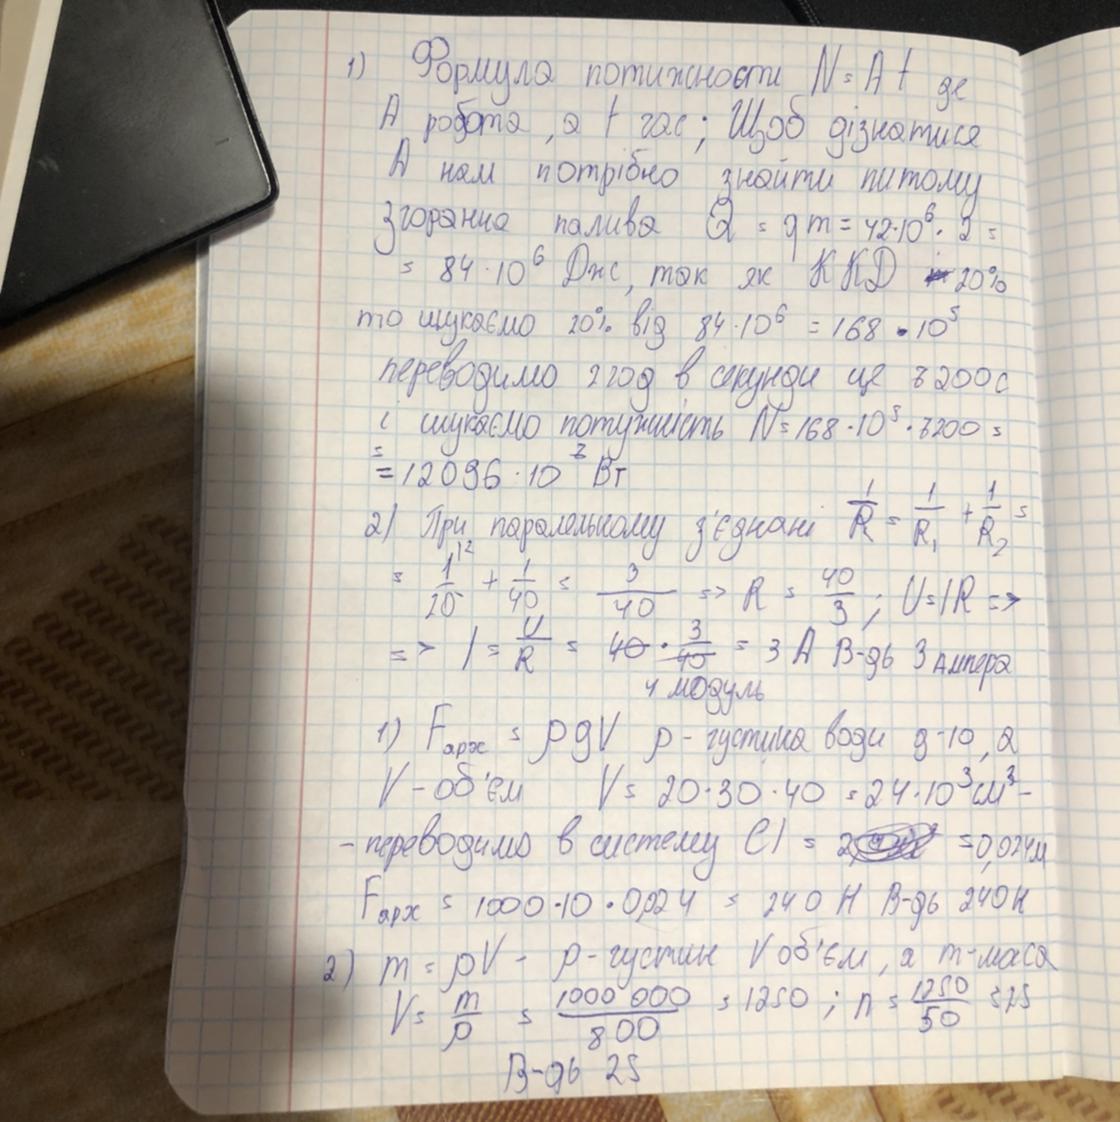 1) Формула потижности N = A t де
A робота, а t час; Щоб дізнатися
A нам потрібно знайти питому
згорання палива Q = qm = 42·10⁶·2 =
= 84·10⁶ Дж, так як ККД 20%
то шукаємо 20% від 84·10⁶ = 168·10⁵
переводимо 2 год в секунди це 7200с
і шукаємо потужність N = 168·10⁵·7200 =
= 12096·10⁷ Вт
2) При паралельному з'єднані 1/R = 1/R₁ + 1/R₂ =
= 1/20 + 1/40 = 3/40 => R = 40/3; U = IR =>
=> I = U/R = 40 · 3/40 = 3 A В-дь 3 Ампера
4 модуль
1) Fарх = ρgV ρ - густина води g-10, а
V - об'єм V = 20·30·40 = 24·10³ см³ -
- переводимо в систему СІ = = 0,024м
Fарх = 1000·10·0,024 = 240 Н В-дь 240Н
2) m = ρV - ρ - густин V об'єм, а m - маса
V = m/ρ = 1000 000/800 = 1250; n = 1250/50 = 25
В-дь 25